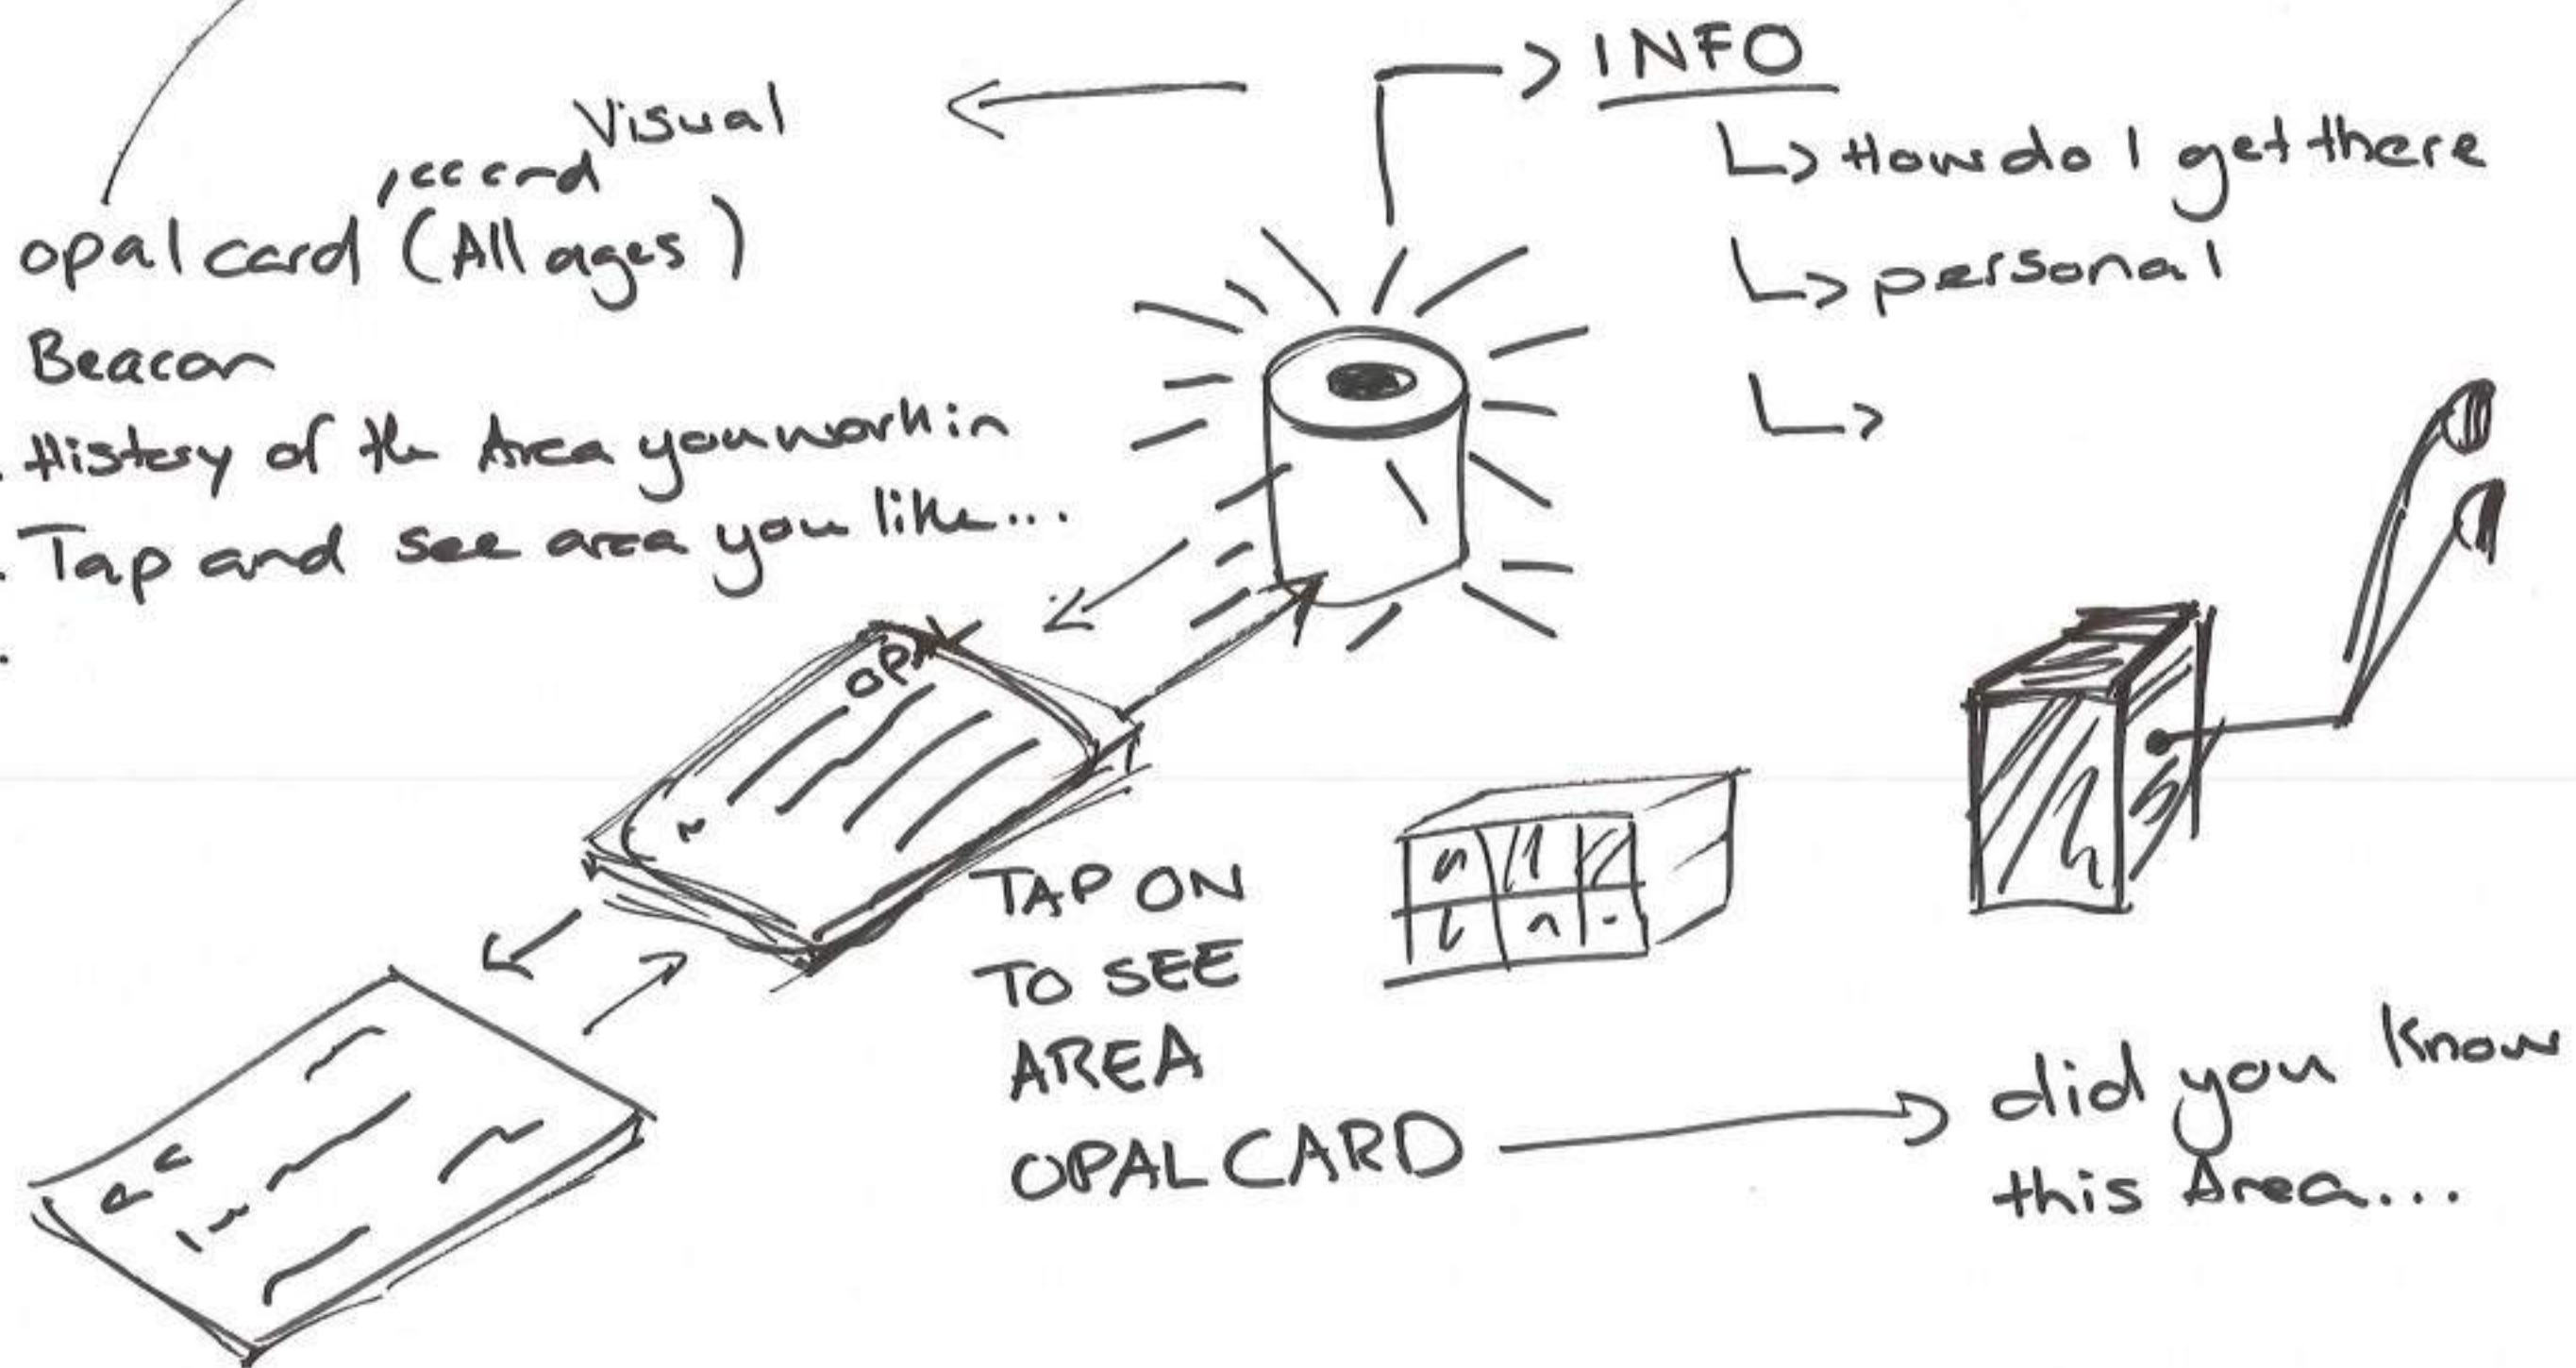 Visual
opal card (All ages)
Beacon
History of the Area you work in
Tap and see area you like...
INFO
How do I get there
personal
OPAL
TAP ON
TO SEE
AREA
OPAL CARD
did you know
this Area...